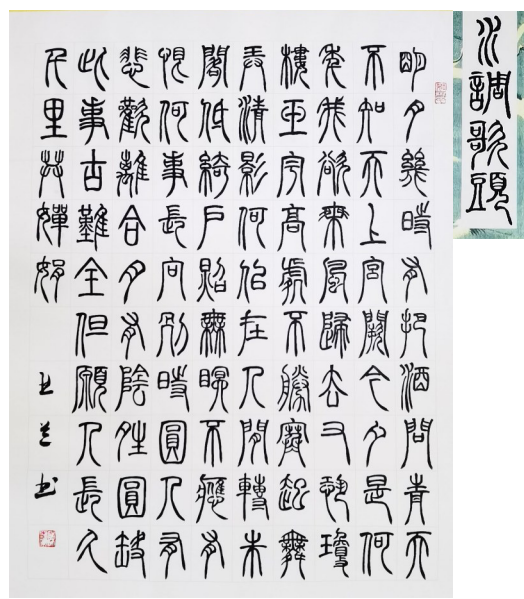 水調歌頭
明月幾時有把酒問青天
不知天上宮闕今夕是何
年我欲乘風歸去又恐瓊
樓玉宇高處不勝寒起舞
弄清影何似在人間轉朱
閣低綺戶照無眠不應有
恨何事長向別時圓人有
悲歡離合月有陰晴圓缺
此事古難全但願人長久
千里共嬋娟
王 书